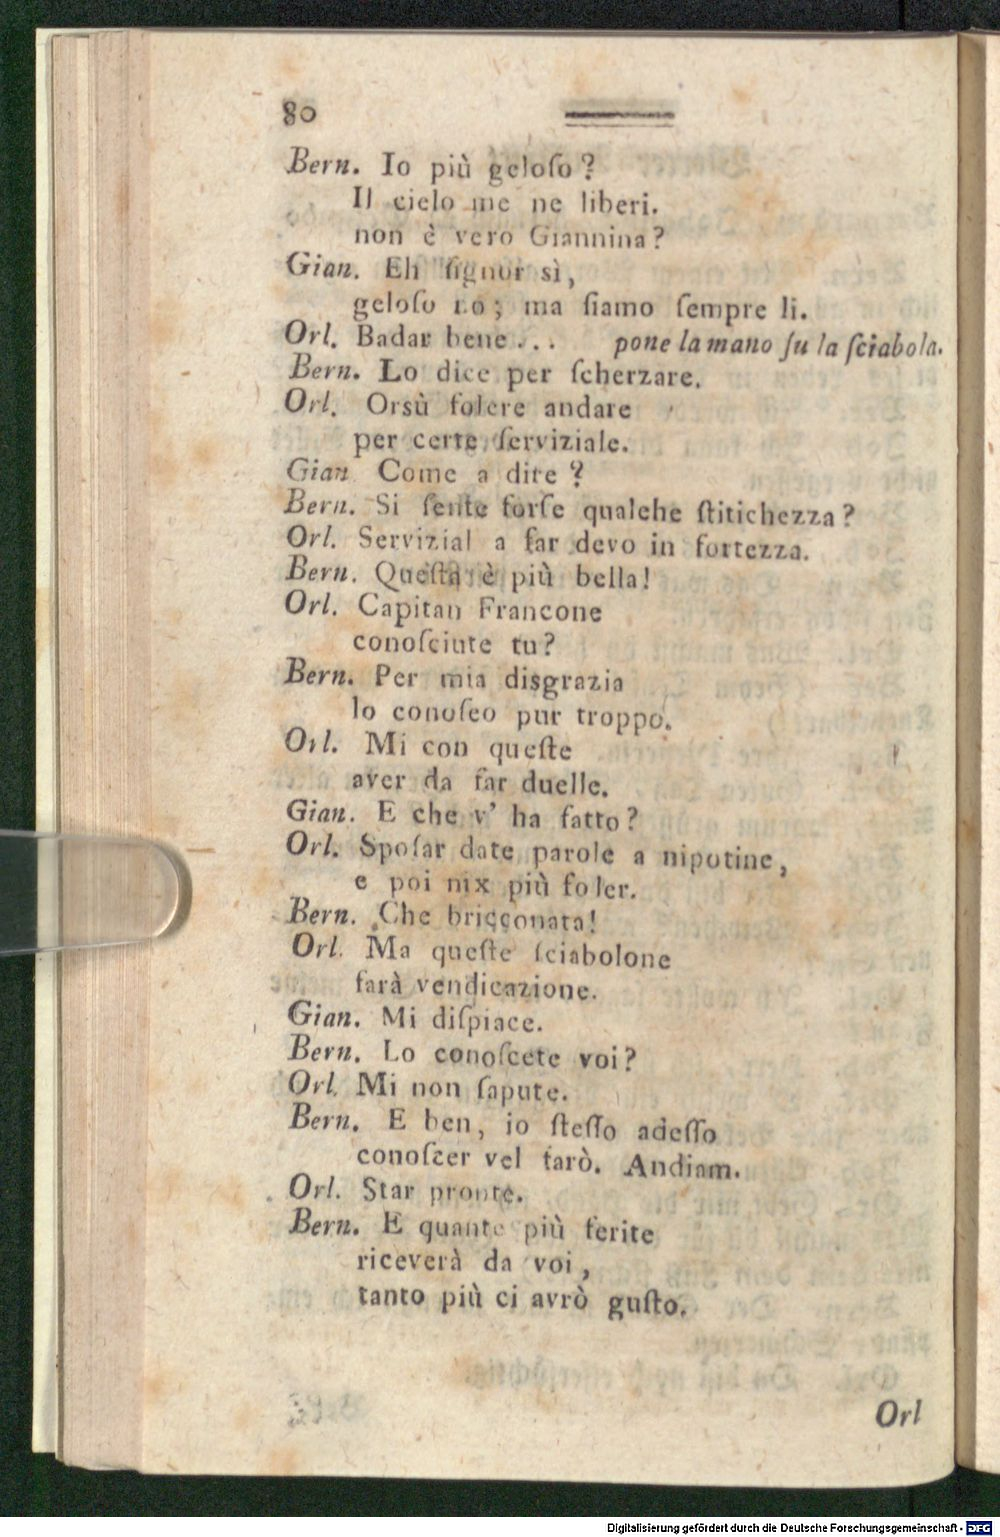 80
Bern. Io più geloſo?
Il cielo me ne liberi.
non è vero Giannina?
Gian. Eh ſignor sì,
geloſo no; ma ſiamo ſempre lì.
Orl. Badar bene... pone la mano ſu la ſciabola.
Bern. Lo dice per ſcherzare.
Orl. Orsù folere andare
per certe ſerviziale.
Gian Come a dire?
Bern. Si ſente forſe qualche ſtitichezza?
Orl. Servizial a far devo in fortezza.
Bern. Queſta è più bella!
Orl. Capitan Francone
conoſciute tu?
Bern. Per mia disgrazia
lo conoſco pur troppo.
Orl. Mi con queſte
aver da far duelle.
Gian. E che v' ha fatto?
Orl. Spoſar date parole a nipotine,
e poi nix più foler.
Bern. Che bricconata!
Orl. Ma queſte ſciabolone
farà vendicazione.
Gian. Mi diſpiace.
Bern. Lo conoſcete voi?
Orl. Mi non ſapute.
Bern. E ben, io ſteſſo adeſſo
conoſcer vel farò. Andiam.
Orl. Star pronte.
Bern. E quante più ferite
riceverà da voi,
tanto più ci avrò guſto.
Orl
Digitalisierung gefördert durch die Deutsche Forschungsgemeinschaft - DFG